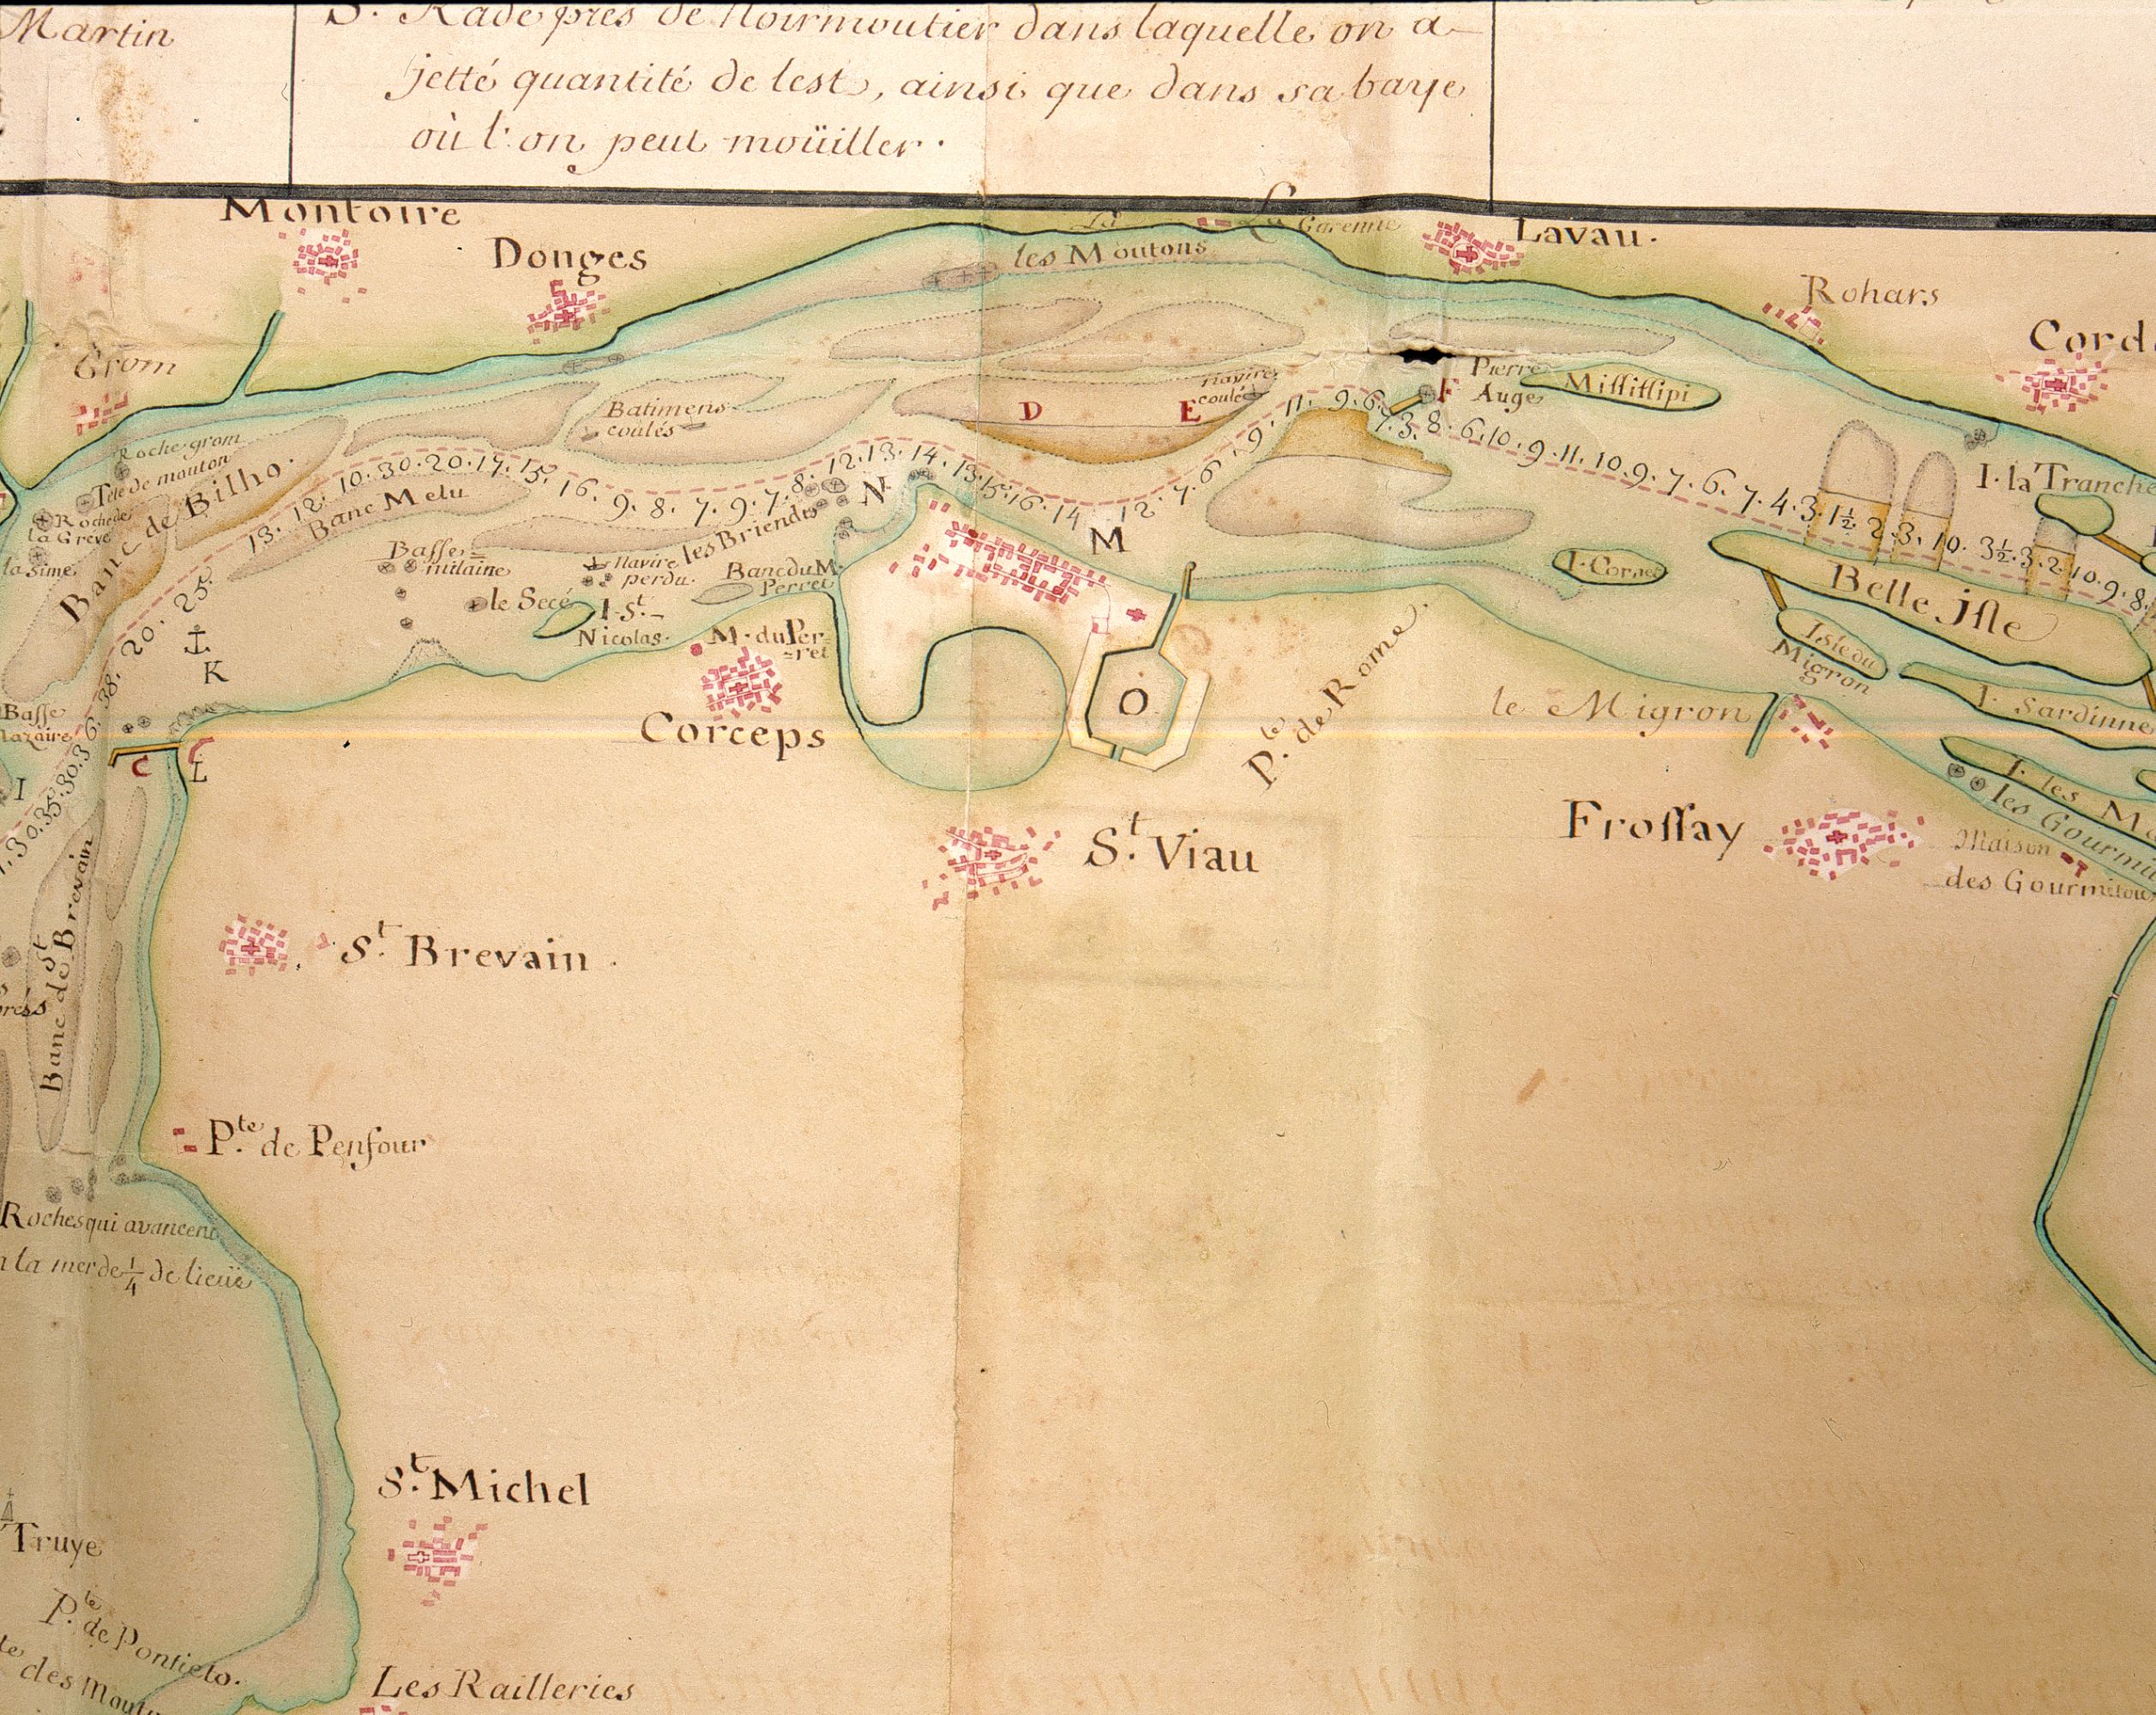 Martin
S. Rade près de Noirmoutier dans laquelle on a
jetté quantité de lest, ainsi que dans sa baye
où l'on peut moüiller.
Montoire
Donges
La
les Moutons
La Garenne
Lavau.
Rohars
Cord
Grom
Roche grom
Tete de mouton
Roche de
la Greve
la Sime
Banc de Bilho.
Batimens
coulés
Navire
coulé
D
E
Pierre
Auge
F
Missitlipi
I. la Tranche
13. 12. 10. 30. 20. 17. 15. 16. 9. 8. 7. 9. 7. 8. 12. 13. 14. 13. 15. 16. 14. 12. 7. 6. 9. 11. 9. 6. 7. 3. 8. 6. 10. 9. 11. 10. 9. 7. 6. 7. 4. 3. 1½. 2. 3. 10. 3½. 3. 2. 10. 9. 8.
Banc Melu
Basse
milaine
Navire
perdu.
les Briendes
N
M
Banc du M.
Perret
le Secé
I. St.
Nicolas.
M. du Per=
=ret
I. Cornet
Belle Isle
Isle du
Migron
I. Sardinne
I. les M
les Gourmi
25. 20. 38. 36. 30. 35. 30.
K
Basse
Nazaire
C
L
I
Corceps
O
Pte. de Rome.
le Migron
St. Viau
Frossay
Maison
des Gourmitou
St. Brevain.
Banc de St Brevain
près
Pte. de Penfour
Roches qui avancent
la mer de ¼ de lieüe
St. Michel
Truye
Pte. de Pontielo.
des Mout
Les Railleries